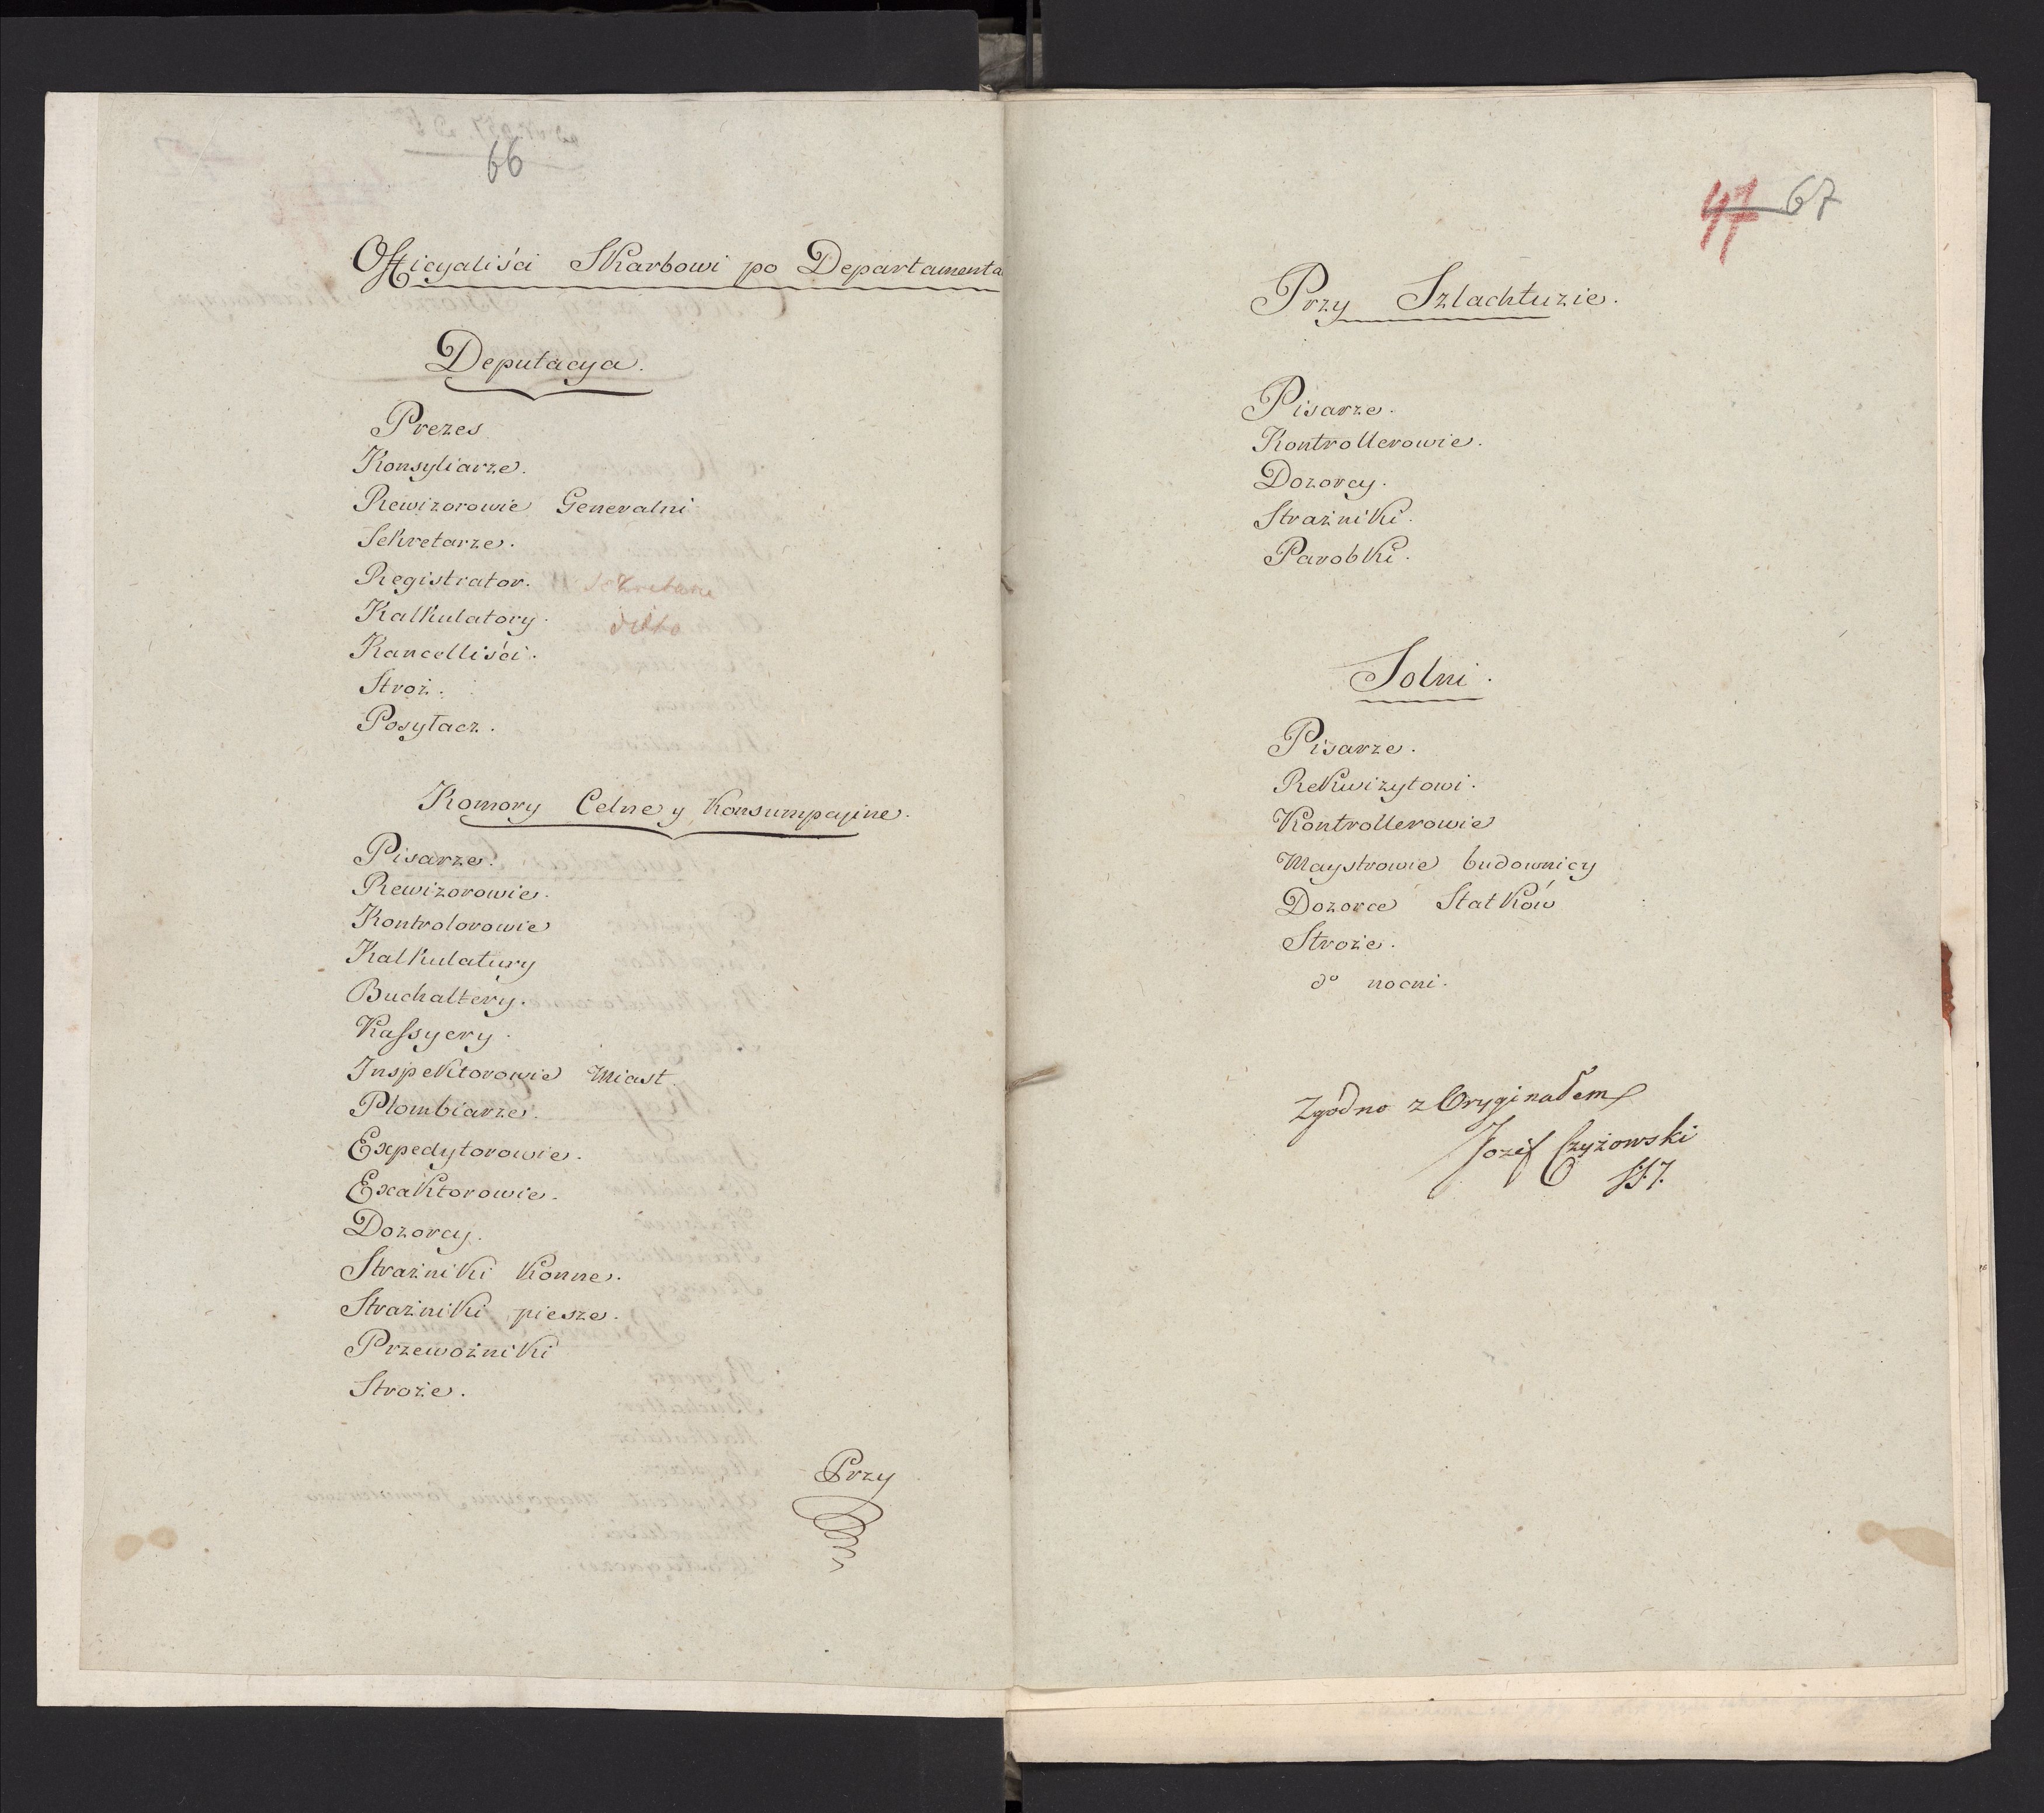 66
Officyaliści Skarbowi po Departamenta
Deputacya.
Prezes
Konsyliarze.
Rewizorowie Generalni
Sekretarze.
Registrator. Sekretarze
Kalkulatory. ditto
Kancelliści.
Stroż.
Posyłacz.
Komory Celne y Konsumpcyine.
Pisarze.
Rewizorowie.
Kontrolorowie
Kalkulatury
Buchaltery.
Kassyery.
Inspektorowie Miast.
Plombiarze.
Expedytorowie.
Exaktorowie.
Dozorcy.
Strażniki Konne.
Strażniki piesze.
Przewożniki
Stroże.
Przy
47 67
Przy Szlachtuzie.
Pisarze.
Kontrollerowie.
Dozorcy.
Strażniki.
Parobki.
Solni.
Pisarze.
Rekwizytowi.
Kontrollerowie
Maystrowie budownicy
Dozorce Statków
Stroże.
do nocni.
Zgodno z Oryginałem
Jozef Czyżowski